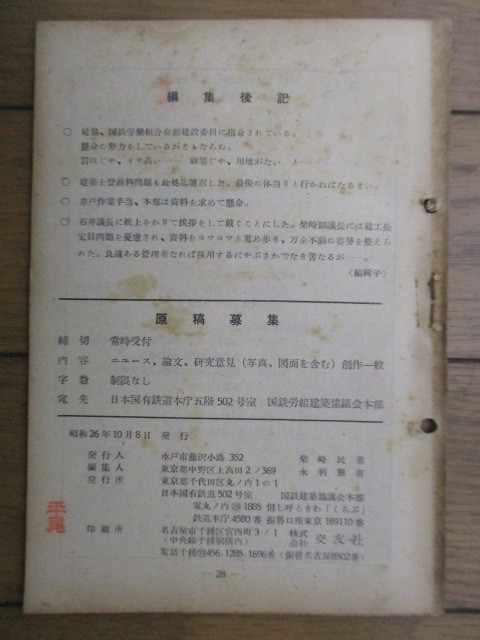 編集後記
○ 建築、国鉄労働組合会館建設委員に指命されている。
懸命の努力をしているがまゝならぬ。
買収じや、イヤ高い……新築じや、用地がない と……
○ 建築士登録料問題も此処迄
た。最後の体当りと行かねばなるまい。
○ 井戸作業手当、本部は資料を求めて懸命。
○ 石井議長に紙上をかりて挨拶をして戴くことにした。柴崎副議長には建工長
定員問題を憂慮され、資料をコツコツと蒐め歩き、万全不動の姿勢を整えら
れた。良識ある管理者なれば採用するにやぶさかでなき筈なるが──。
(編輯子)
原稿募集
締切 常時受付
内容 ニュース、論文、研究意見(写真、図面を含む)創作一般
字数 制限なし
宛先 日本国有鉄道本庁五階502号室 国鉄労組建築協議会本部
昭和26年10月8日 発行
発行人 水戸市藤沢小路352 柴崎民男
編集人 東京都中野区上高田2ノ369 永利
発行所 東京都千代田区丸ノ内1の1
日本国有鉄道502号室 国鉄建築協議会本部
電丸ノ内㉘1885 但し呼ときわ「くらぶ」
鉄道本庁4580番 振替口座東京189110番
平尾
印刷所 名古屋市千種区宮西町3ノ1 株式会社 交友社
(中央線千種駅構内)
電話千種 456.1285.1696番(振替名古屋8502番)
28